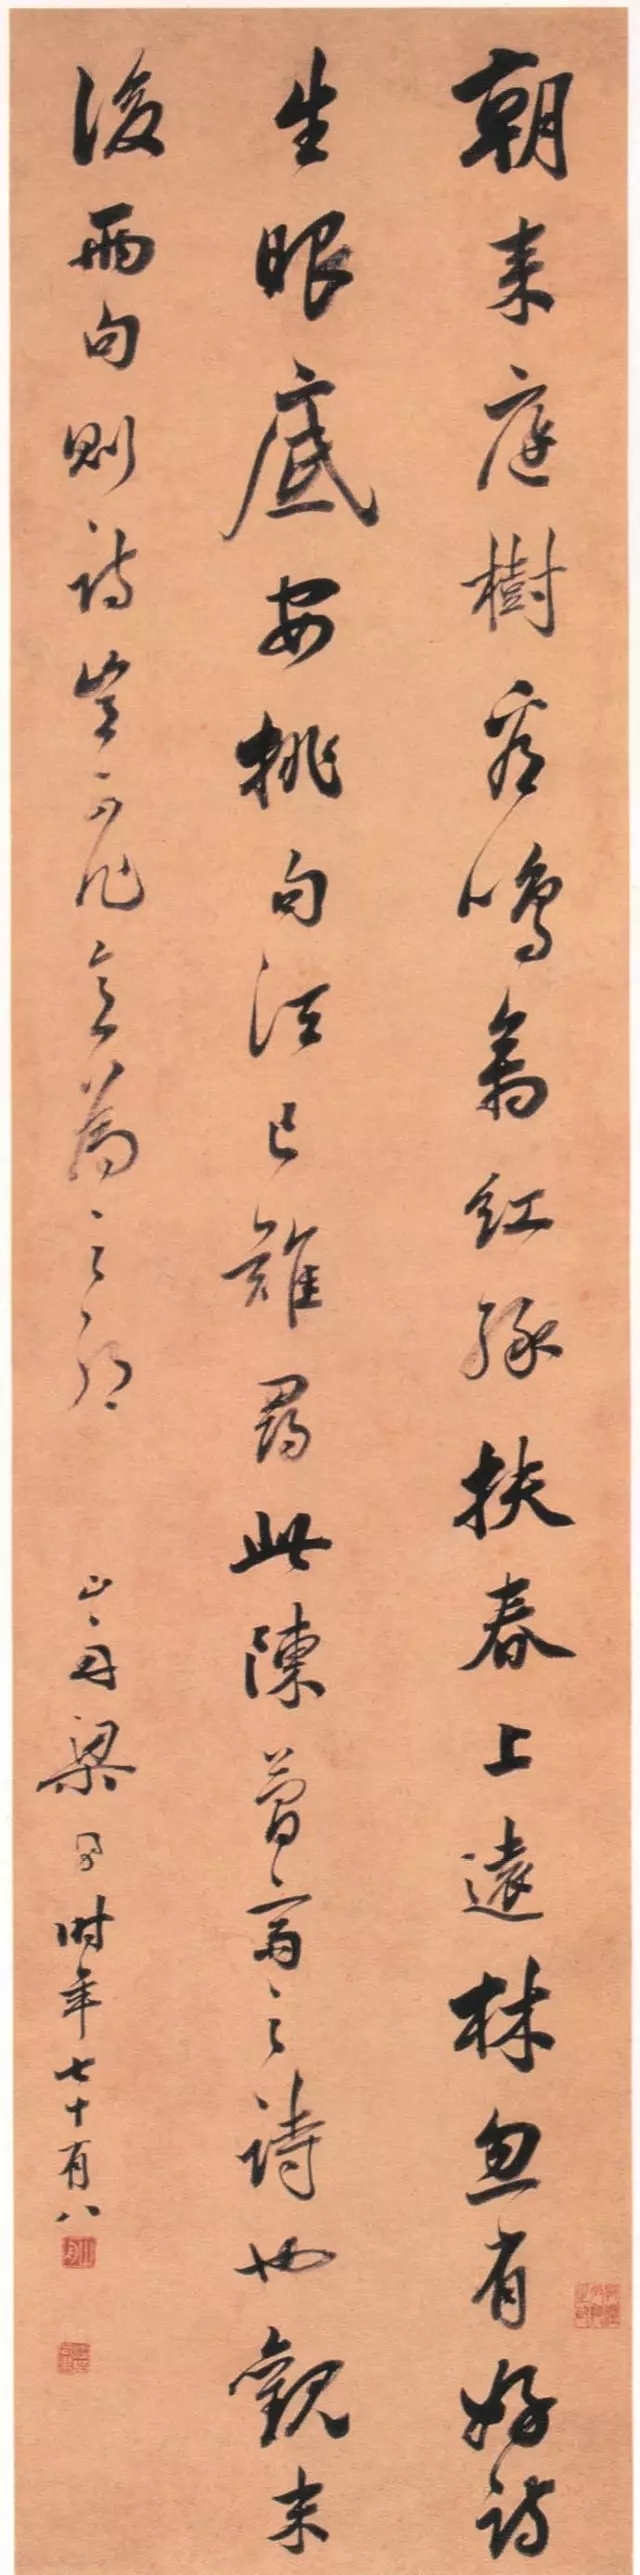 朝來庭樹有鳴禽紅綠扶春上遠林忽有好詩
生眼底安排句法已難尋此陳簡齋之詩也觀末
後兩句則詩豈可作意為之耶
山舟梁同書時年七十有八